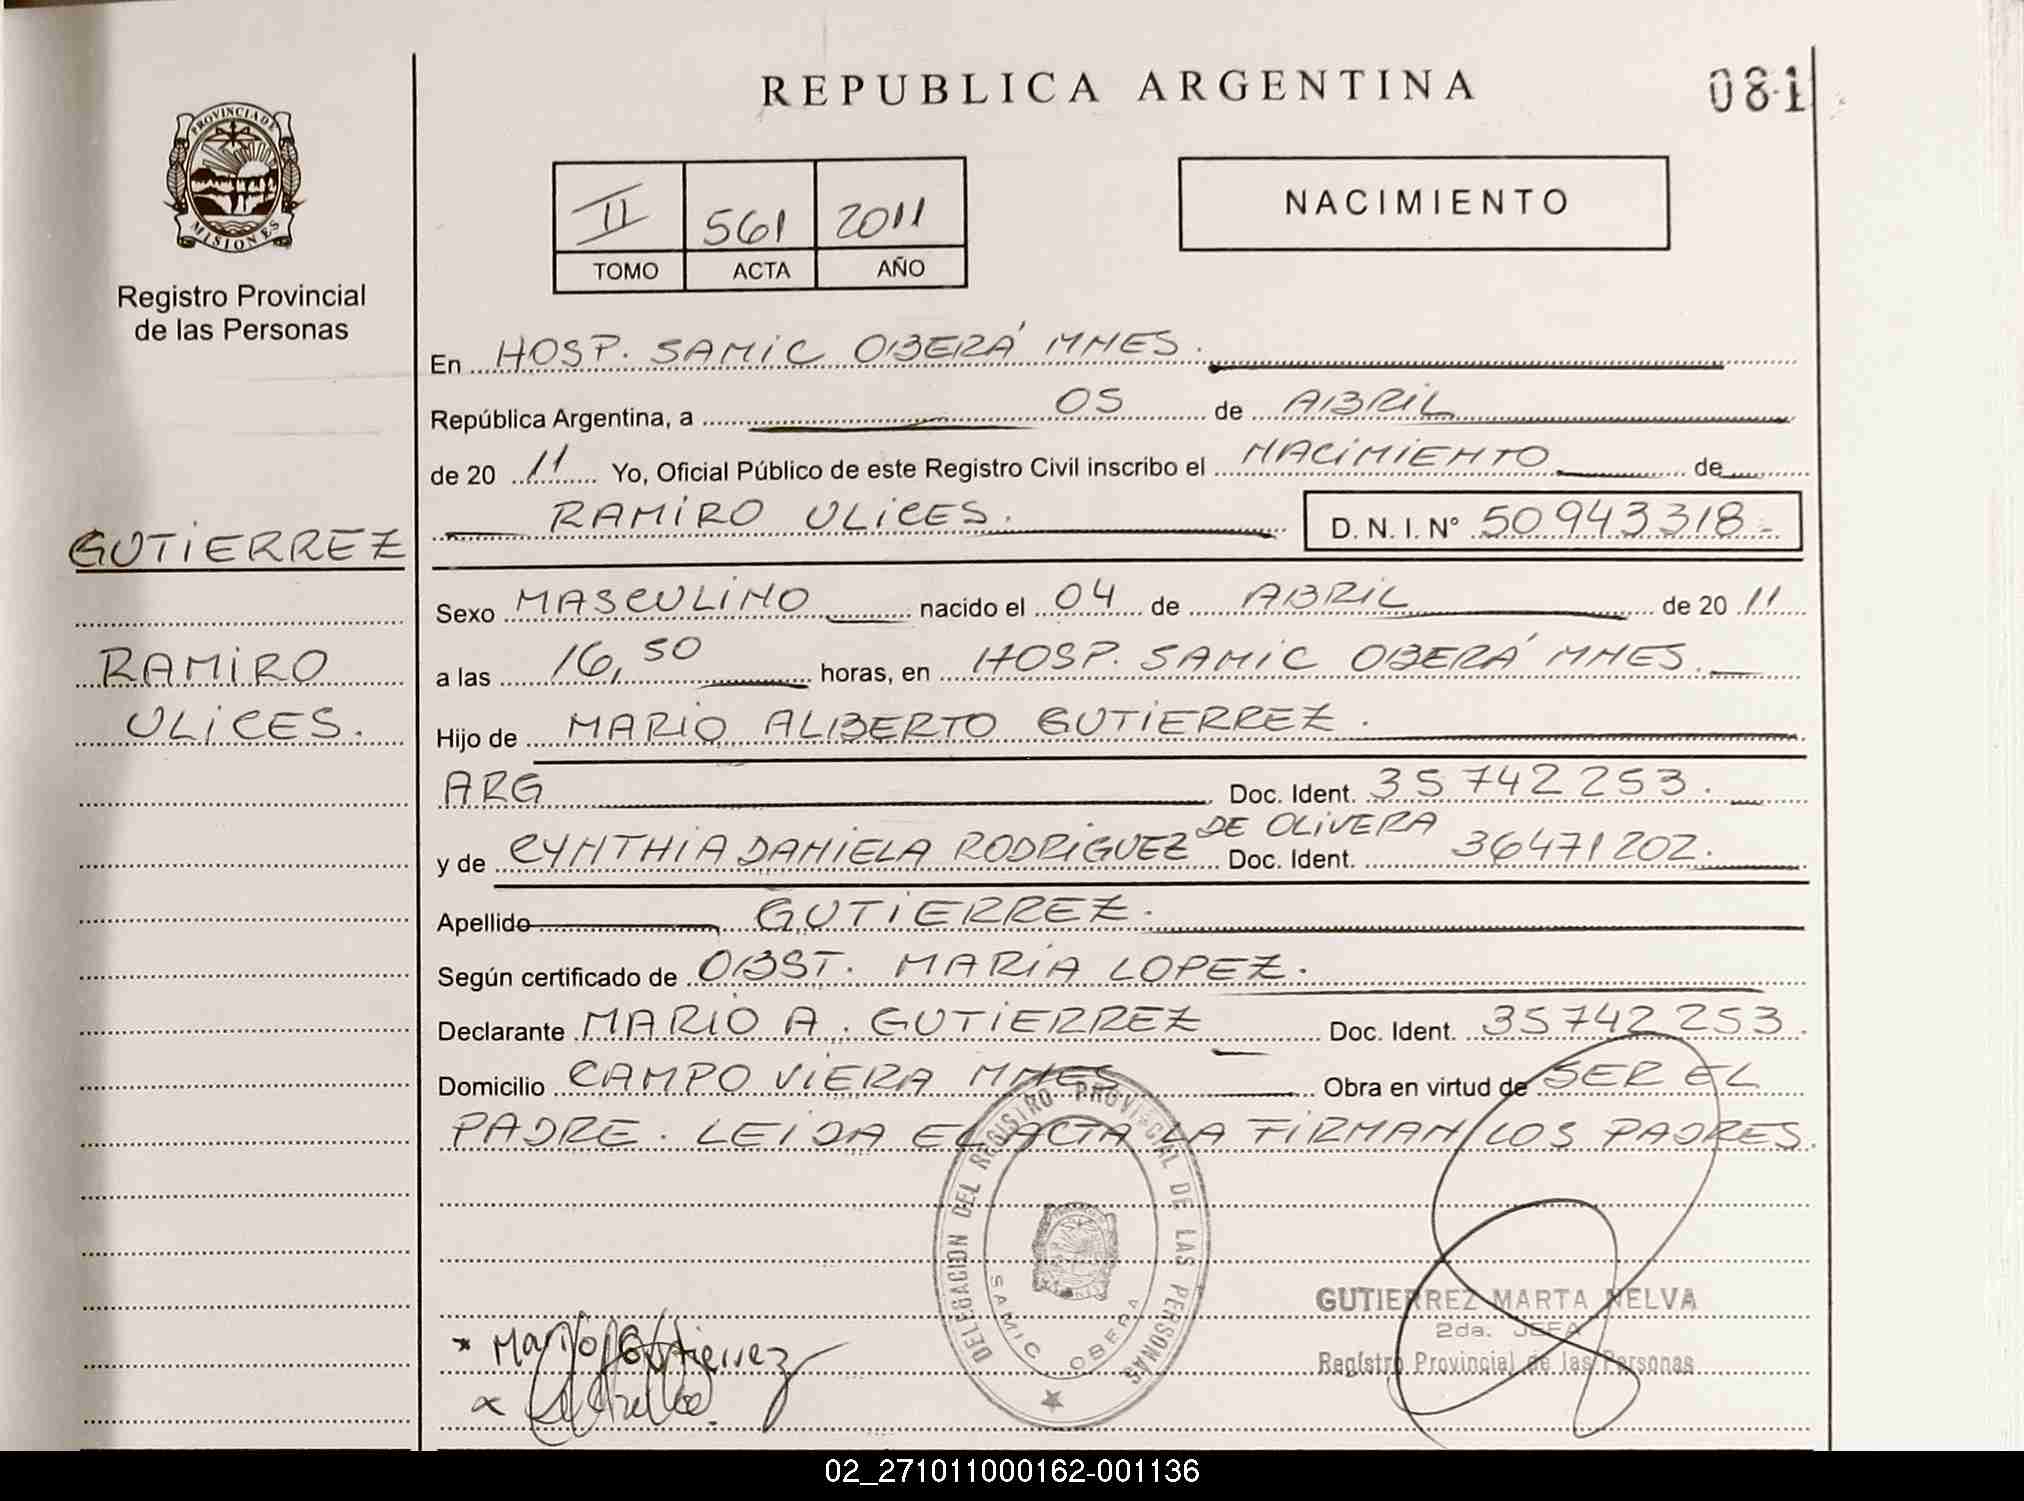 REPUBLICA ARGENTINA
081
PROVINCIA DE
MISIONES
Registro Provincial
de las Personas
II 561 2011
TOMO ACTA AÑO
NACIMIENTO
En HOSP. SAMIC OBERÁ MNES.
República Argentina, a 05 de ABRIL
de 20 11 Yo, Oficial Público de este Registro Civil inscribo el NACIMIENTO de
RAMIRO ULICES. D. N. I. N° 50943318-
GUTIERREZ
RAMIRO
ULICES.
Sexo MASCULINO nacido el 04 de ABRIL de 20 11
a las 16,50 horas, en HOSP. SAMIC OBERÁ MNES.
Hijo de MARIO ALBERTO GUTIERREZ.
ARG Doc. Ident. 35742253.
y de CYNTHIA DANIELA RODRIGUEZ DE OLIVERA Doc. Ident. 36471202.
Apellido GUTIERREZ.
Según certificado de OBST. MARIA LOPEZ.
Declarante MARIO A. GUTIERREZ Doc. Ident. 35742253.
Domicilio CAMPO VIERA MNES Obra en virtud de SER EL
PADRE. LEIDA EL ACTA LA FIRMAN LOS PADRES.
DELEGACION DEL REGISTRO PROVINCIAL DE LAS PERSONAS
SAMIC OBERA
GUTIERREZ MARTA NELVA
2da. JEFA
Registro Provincial de las Personas
x Mario Gutierrez
x
02_271011000162-001136